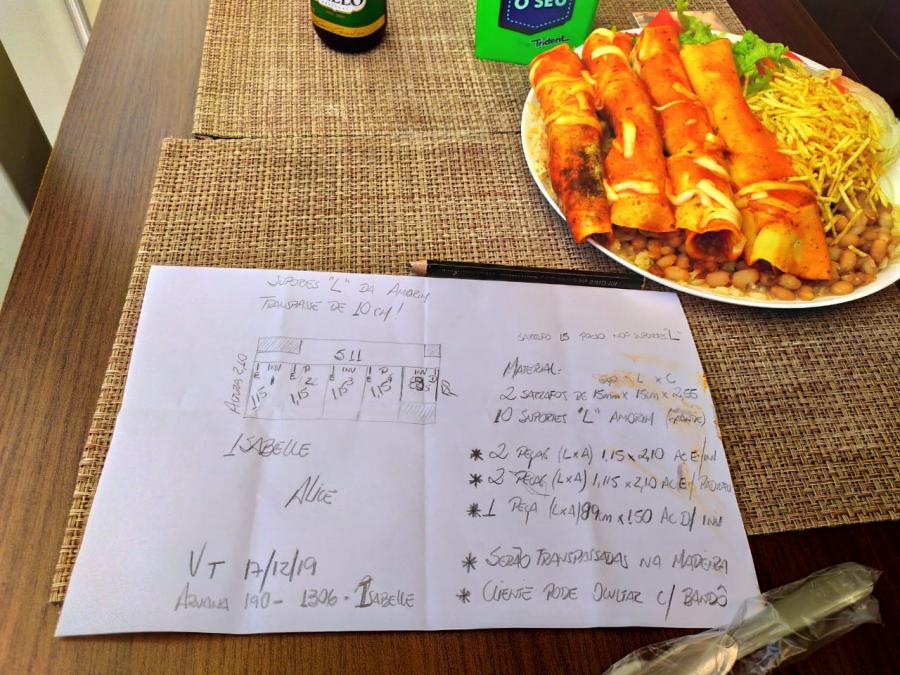 O SEU
Trident
SUPORTES "L" DA AMORIM
TRANSPASSE DE 10 CM!
5.11
ALTURA 2,10
INV
INV
INV
1,15
1,15
1,15
ISABELLE
ALICE
VT 17/12/19
ARUANA 190 - 1306 - ISABELLE
SARRAFO 15 NOS SUPORTES "L"
MATERIAL:
L x C
2 SARRAFOS DE 15mm x 15cm x 2,55
10 SUPORTES "L" AMORIM
* 2 PEÇAS (LxA) 1,15 x 2,10 AC E/INV
* 2 PEÇAS (LxA) 1,115 x 2,10 AC E/
* 1 PEÇA (LxA) x 1.50 AC D/ INV
* SERÃO TRANSPASSADAS NA MADEIRA
* CLIENTE PODE OCULTAR C/ BANDÔ